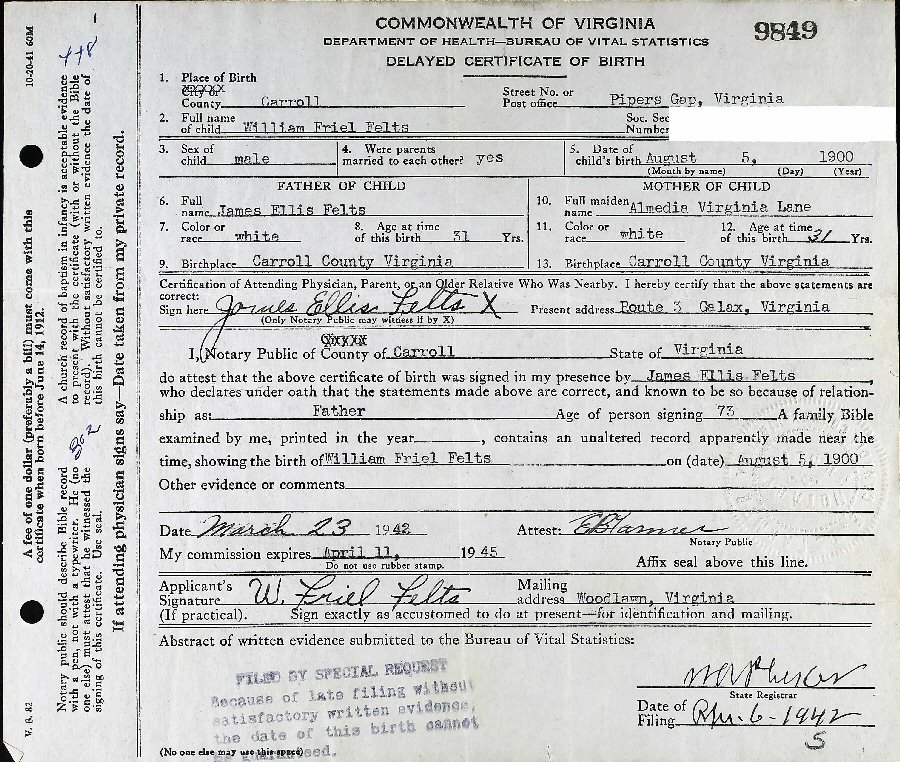 COMMONWEALTH OF VIRGINIA
DEPARTMENT OF HEALTH—BUREAU OF VITAL STATISTICS
DELAYED CERTIFICATE OF BIRTH
9849
1. Place of Birth
City or
County Carroll
Street No. or
Post office Pipers Gap, Virginia
2. Full name
of child William Friel Felts
Soc. Sec
Number
3. Sex of
child male
4. Were parents
married to each other? yes
5. Date of
child's birth August 5, 1900
(Month by name) (Day) (Year)
FATHER OF CHILD
MOTHER OF CHILD
6. Full
name James Ellis Felts
10. Full maiden
name Almedia Virginia Lane
7. Color or
race white
8. Age at time
of this birth 31 Yrs.
11. Color or
race white
12. Age at time
of this birth 31 Yrs.
9. Birthplace Carroll County Virginia
13. Birthplace Carroll County Virginia
Certification of Attending Physician, Parent, or an Older Relative Who Was Nearby. I hereby certify that the above statements are
correct:
Sign here James Ellis Felts X
(Only Notary Public may witness if by X)
Present address Route 3 Galax, Virginia
I, Notary Public of County of Carroll State of Virginia
do attest that the above certificate of birth was signed in my presence by James Ellis Felts,
who declares under oath that the statements made above are correct, and known to be so because of relation-
ship as: Father Age of person signing 73 A family Bible
examined by me, printed in the year, contains an unaltered record apparently made near the
time, showing the birth of William Friel Felts on (date) August 5, 1900
Other evidence or comments
Date March 23 1942 Attest:
Notary Public
My commission expires April 11, 1945
Do not use rubber stamp.
Affix seal above this line.
Applicant's
Signature W. Friel Felts
(If practical).
Mailing
address Woodlawn, Virginia
Sign exactly as accustomed to do at present—for identification and mailing.
Abstract of written evidence submitted to the Bureau of Vital Statistics:
FILED BY SPECIAL REQUEST
Because of late filing without
satisfactory written evidence,
the date of this birth cannot
be guaranteed.
(No one else may use this space)
State Registrar
Date of
Filing Apr-6-1942
5
1
10-20-41 60M
448
A church record of baptism in infancy is acceptable evidence
to present with the certificate (with or without the Bible
record). Without satisfactory written evidence the date of
this birth cannot be certified to.
A fee of one dollar (preferribly a bill) must come with this
certificate when born before June 14, 1912.
Notary public should describe Bible record
with a pen, not with a typewriter. He (no
one else) must attest that he witnessed the
signing of this certificate. Use seal.
If attending physician signs say—Date taken from my private record.
V. S. 42